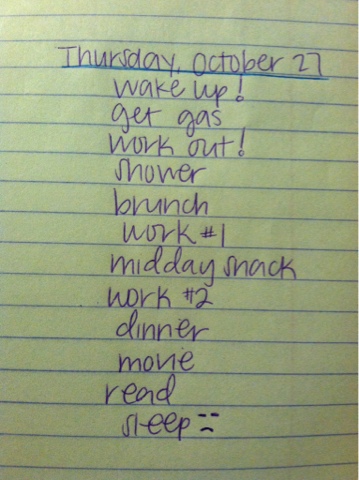 Thursday, October 27
wake up!
get gas
work out!
shower
brunch
work #1
midday snack
work #2
dinner
movie
read
sleep